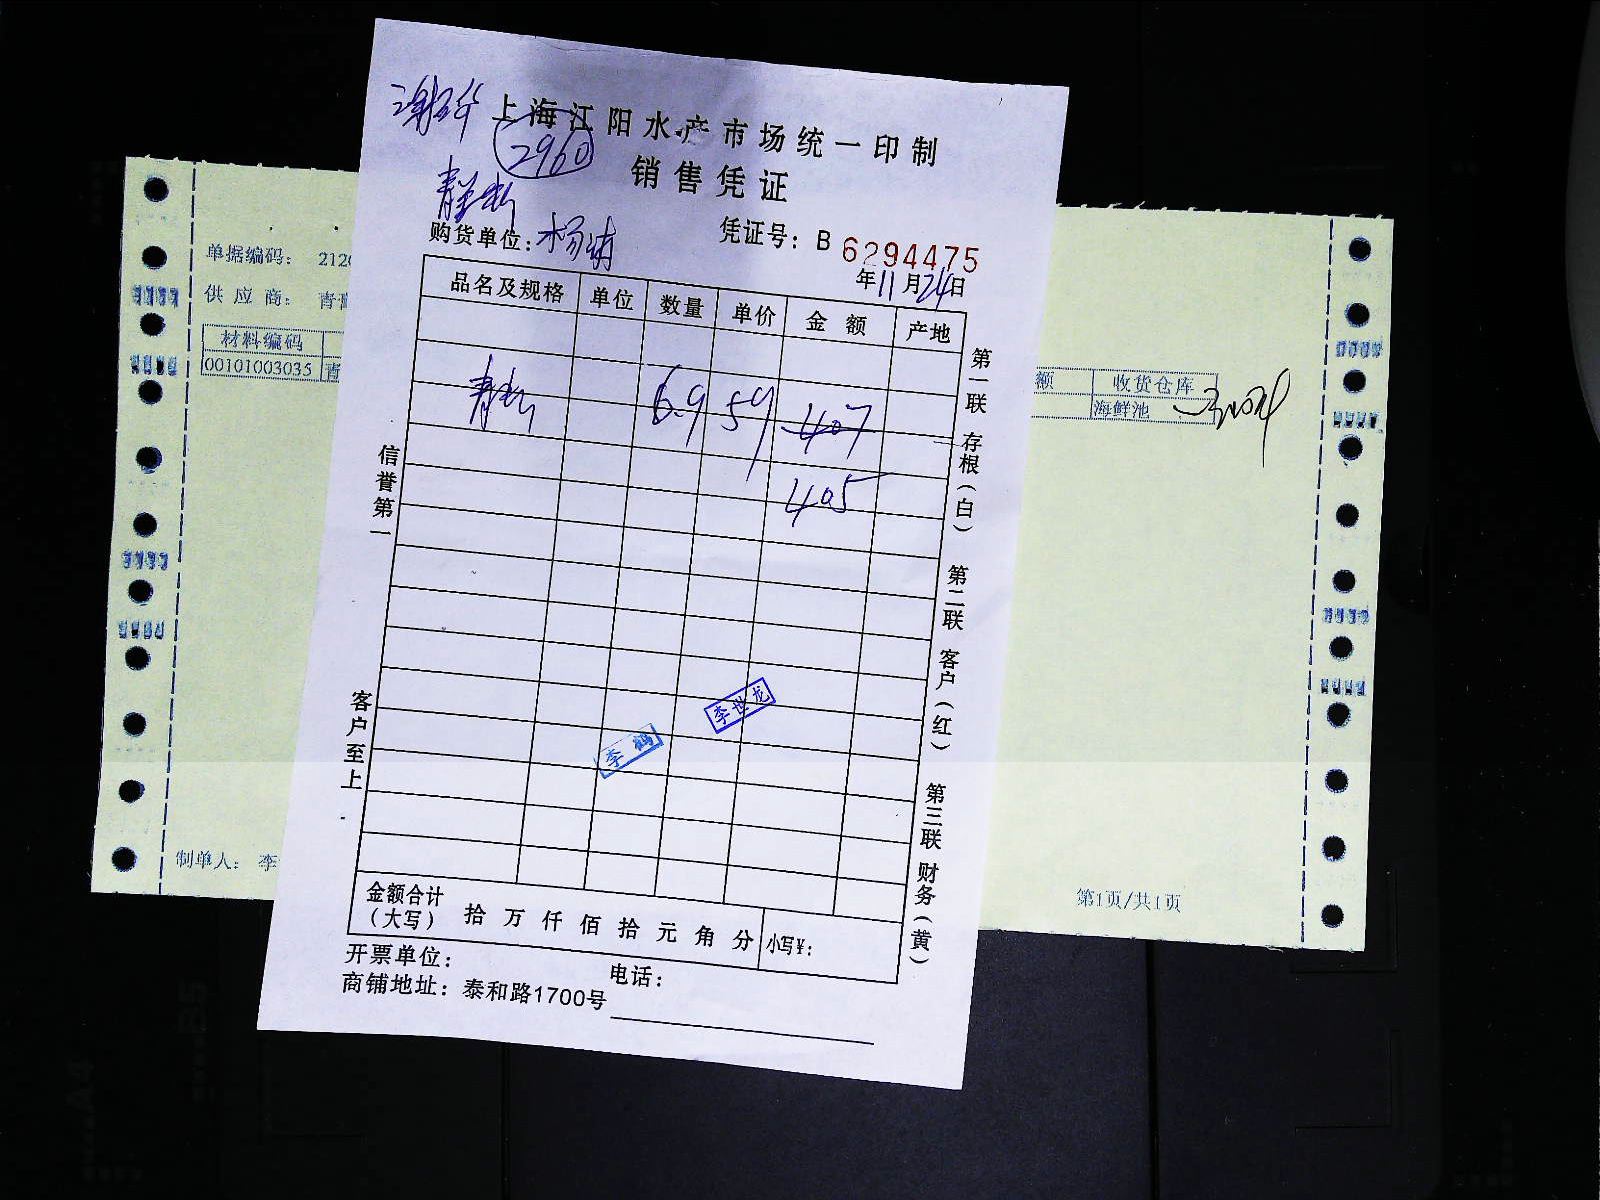 上海江阳水产市场统一印制
2960
销售凭证
购货单位：杨靖
凭证号：B 6294475
年11月24日
品名及规格 单位 数量 单价 金额 产地
6.9 59 407
405
信誉第一
客户至上
第一联 存根（白） 第二联 客户（红） 第三联 财务（黄）
李世龙
李鹤
金额合计（大写） 拾 万 仟 佰 拾 元 角 分 小写¥：
开票单位：
电话：
商铺地址：泰和路1700号
单据编码： 2120
供 应 商： 青
材料编码
00101003035 青
额 收货仓库
海鲜池
制单人： 李
第1页/共1页